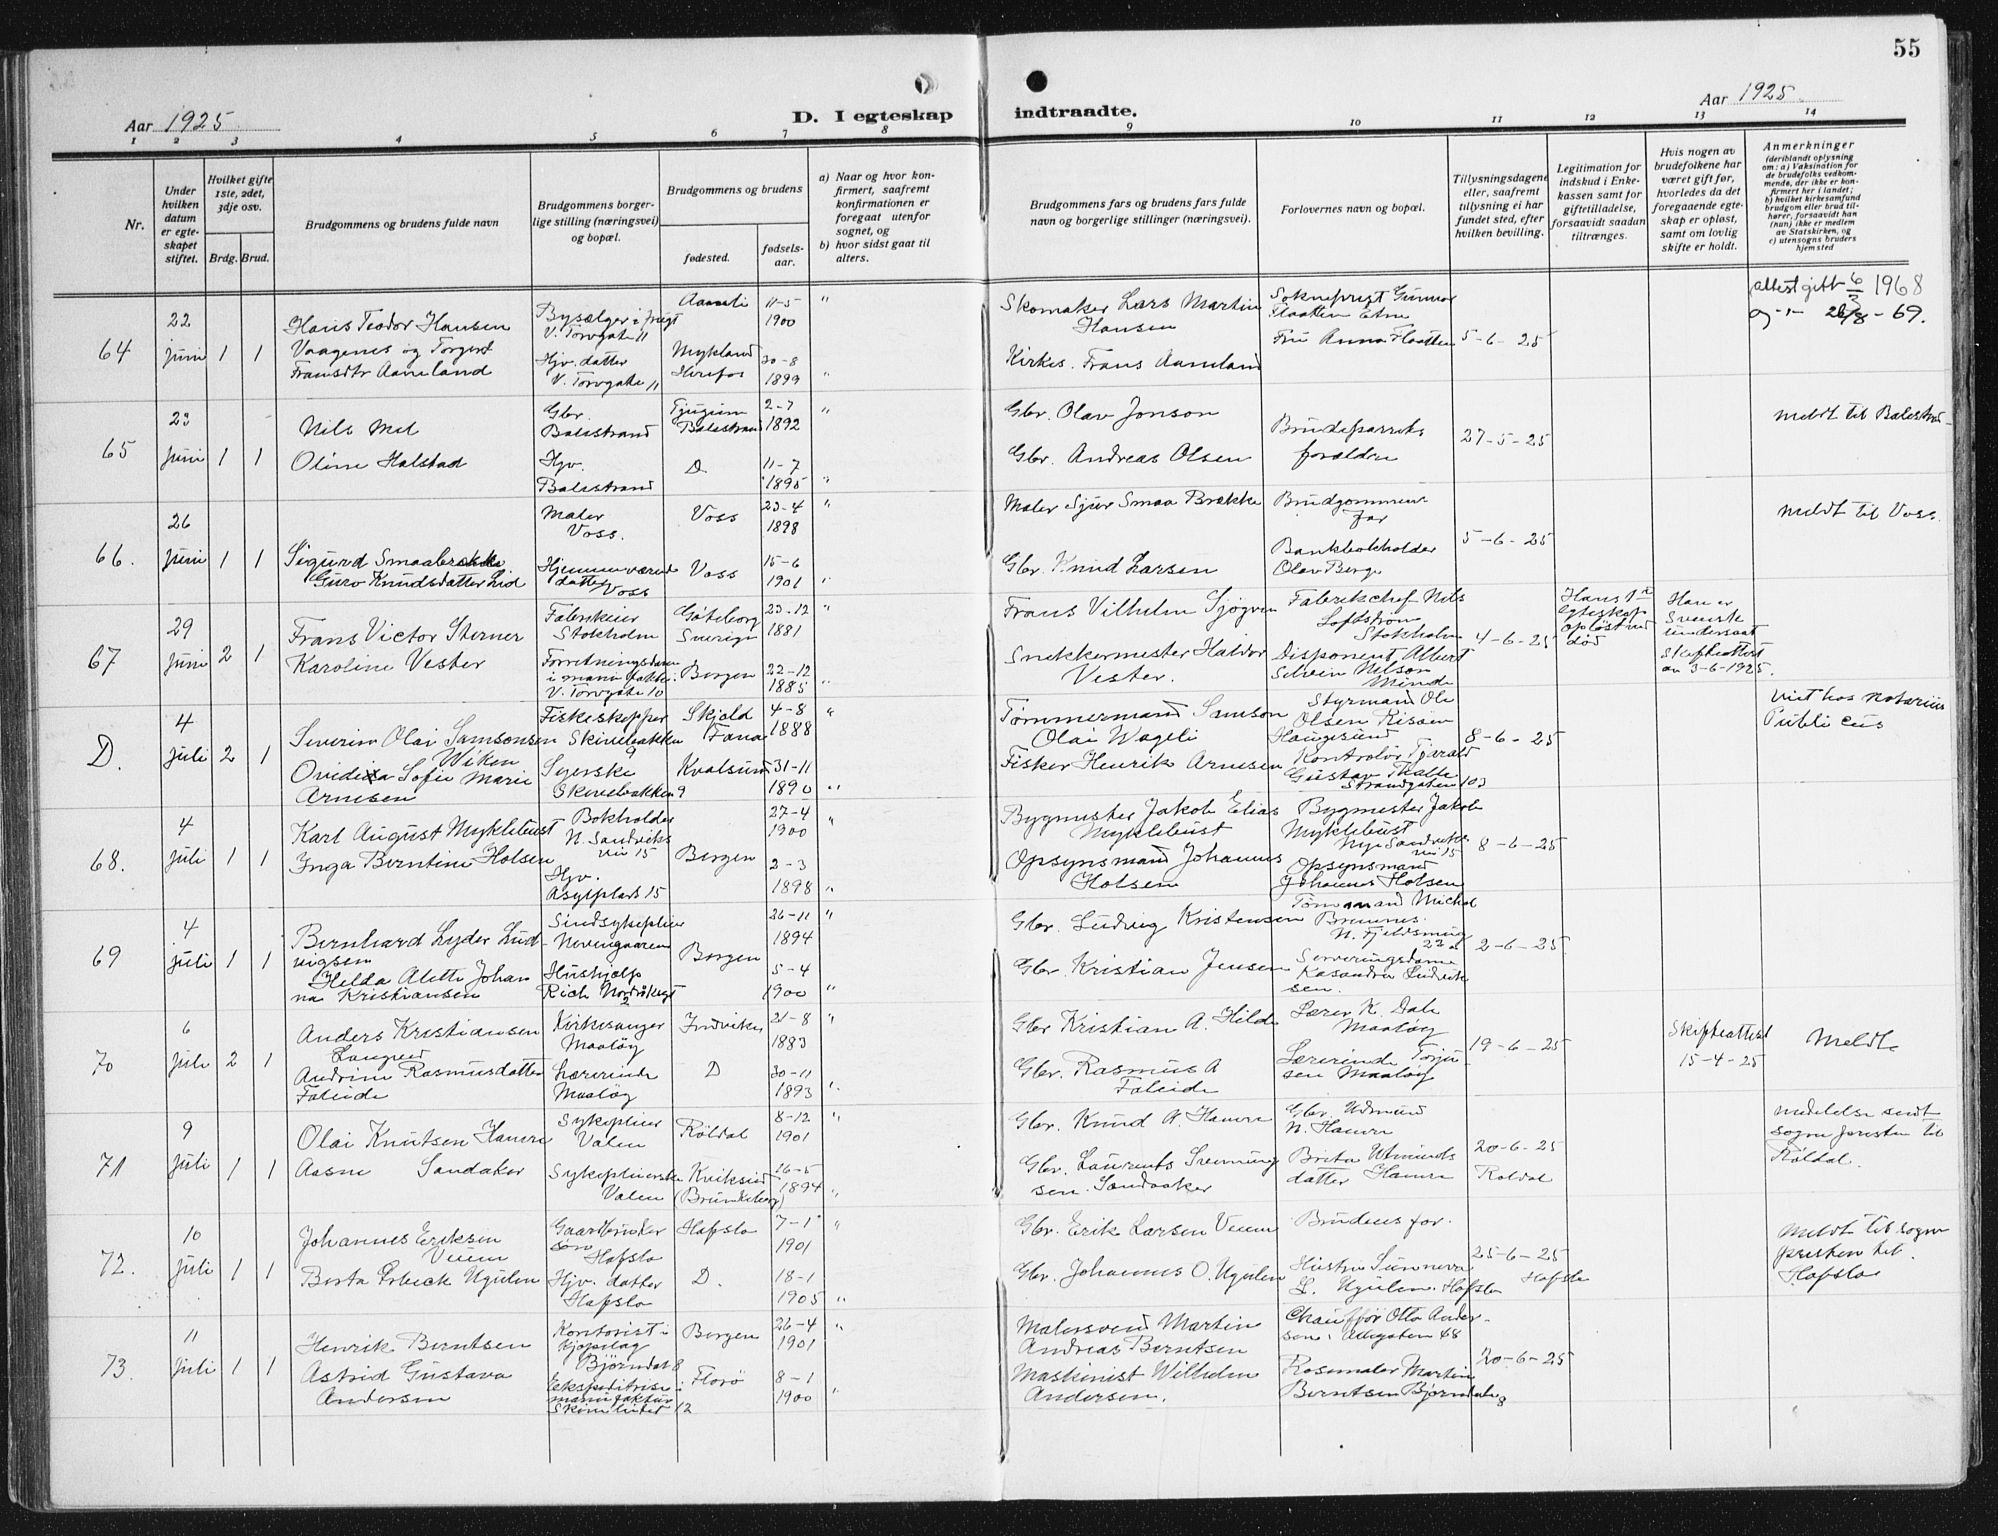 55
Aar 1925.
D. I egteskap indtraadte.
Aar 1925.
1 2 3 4 5 6 7 8 9 10 11 12 13 14
Nr.
Under hvilken datum er egteskapet stiftet.
Hvilket gifte 1ste, 2det, 3dje osv.
Brdg. Brud.
Brudgommens og brudens fulde navn
Brudgommens borgerlige stilling (næringsvei) og bopæl.
Brudgommens og brudens
fødested.
fødselsaar.
a) Naar og hvor konfirmert, saafremt konfirmationen er foregaat utenfor sognet, og
b) hvor sidst gaat til alters.
Brudgommens fars og brudens fars fulde navn og borgerlige stillinger (næringsvei).
Forlovernes navn og bopæl.
Tillysningsdagene eller, saafremt tillysning ei har fundet sted, efter hvilken bevilling.
Legitimation for indskud i Enkekassen samt for giftetilladelse, forsaavidt saadan tiltrænges.
Hvis nogen av brudefolkene har været gift før, hvorledes da det foregaaende egteskap er opløst, samt om lovlig skifte er holdt.
Anmerkninger
(deriblandt oplysning om: a) Vaksination for de brudefolks vedkommende, der ikke er konfirmert her i landet; b) hvilket kirkesamfund brudgom eller brud tilhører, forsaavidt han (hun) i ikke er medlem av Statskirken, og c) utensogns bruders hjemsted
64
22 juni
1 1
Hans Teodor Hansen
Vaagenes og Torgert
Fransdtr Aaneland
Bysælger i frugt
V. Torvgate 11
Hjv. datter
V. Torvgate 11
Mykland
11-5 1900
30-8 1899
Skomaker Lars Martin Hansen
Kirkes. Frans Aamland
Sokneprest Gunnar Flaatten Etne
Fru Anna Flaatten
5-6-25
attest gitt 6 1968
65
23 juni
1 1
Nils Mel
Oline Halstad
Gbr. Balestrand
Hjv. Balestrand
Tjugum Balestrand
D.
2-7 1892
11-7 1895
Gbr. Olav Jonson
Gbr. Andreas Olsen
Brudeparrets forældre
27-5-25
meldt til Balestrand
66.
26 juni
1 1
Sigurd Smaabrekke
Guro Knudsdatter Lid
Maler Voss.
Hjemmeværende datter Voss
Voss
Voss
23-4 1898
15-6 1901
Maler Sjur Smaa Brække
Gbr. Knud Larsen
Brudgommens far
Bankbokholder Olav Berge
5-6-25
meldt til Voss.
67
29 juni
2 1
Frans Victor Sterner
Karoline Vester
Fabrikeier Stokholm
Forretningsdame i manufaktur.
V. Torvgate 10
Gøteborg Sverige
Bergen
23-12 1881
22-12 1885
Frans Vilhelm Sjøgren
Snekkermester Haldor Vester.
Fabrikchef Nils Loftstrøm Stokholm
Disponent Albert Selvin Nilson Minde
4-6-25
Hans 1ste Egteskap opløst ved død
Han er Svensk undersaat
Skifteattest av 3-6-1925.
D.
4 juli
2 1
Severin Olai Samsonsen Wiken
Ovidia Sofie Marie Arnesen
Fiskeskipper Skivebakken 9
Syerske Skivebakken 9
Skjold Fana
Kvalsund
4-8 1888
31-11 1890
Tømmermand Samson Olai Vageli
Fisker Henrik Arnesen
Styrmand Ole Olsen Risøen Haugesund
Kontrolør Tjerald Gustav Thalle Strandgaten 103
8-6-25
viet hos notarius Publicus
68.
4 juli
1 1
Karl August Myklebust
Inga Berntine Holsen
Bokholder N. Sandviksvei 15
Hjv. Asylplads 15
Bergen
27-4 1900
2-3 1898
Bygmester Jakob Elias Myklebust
Opsynsmand Johannes Holsen
Bygmester Jakob Myklebust Nye Sandviksvei 15
Opsynsmand Johannes Holsen
8-6-25
69
4 juli
1 1
Bernhard Lyder Ludvigsen
Helda Alette Johanna Kristiansen
Sindsykepleier Nevengaarden
Hushjelp Rich Nordråksgt 2
Bergen
26-11 1894
5-4 1900
Gbr. Ludvig Kristensen
Gbr. Kristian Jensen
Tømmermand Michal Bremnes. N. Fjeldsmug 22a
Serveringsdame Kasandra Ludviksen.
2-6-25
70
6 juli
2 1
Anders Kristiansen
Andrine Rasmusdatter Faleide
Kirkesanger Maaløy
Lærerinde Maaløy
Indviken
D
21-8 1883
30-11 1893
Gbr Kristian A. Hilde
Gbr. Rasmus A Faleide
Lærer K. Dale Maaløy
Lærerinde Torjusen Maaløy
19-6-25
Skifteattest 15-4-25
Meldt
71
9 juli
1 1
Olai Knutsen Hamre
Aasne Sandaker
Sykepleier Valen
Sykepleierske Valen
Røldal
Kviteseid (Brunkeberg)
8-12 1901
16-5 1894
Gbr. Knud A. Hamre
Gbr. Laurents Svenningsen. Sandaaker
Gbr. Udmund N. Hamre
Brita Utmundsdatter Hamre
20-6-25 Røldal
meddelse sendt sognepresten til Røldal.
72.
10 juli
1 1
Johannes Eriksen Veum
Berta Prbeck Ugulen
Gaardbrukersøn Hafslo
Hjv. datter Hafslo
Hafslo
D.
7-1 1901
18-1 1905
Gbr. Erik Larsen Veum
Gbr. Johannes O. Ugulen
Brudens far.
Hustru Sunneva L. Ugulen. Hafslo
25-6-25 Hafslo
Meldt til sognepresten til Hafslo
73.
11 juli
1 1
Henrik Berntsen
Astrid Gustava Andersen
Kontorist i kjøpelag Bjørndal 8
Ekspeditrise i manufaktur Skivebakken 12
Bergen
Florø
26-4 1901
8-1 1900
Malersvend Martin Andreas Berntsen
Maskinist Wilhelm Andersen.
Chauffør Otto Andersen, Allegaten 48
Rosemaler Martin Berntsen Bjørndal 8
20-6-25